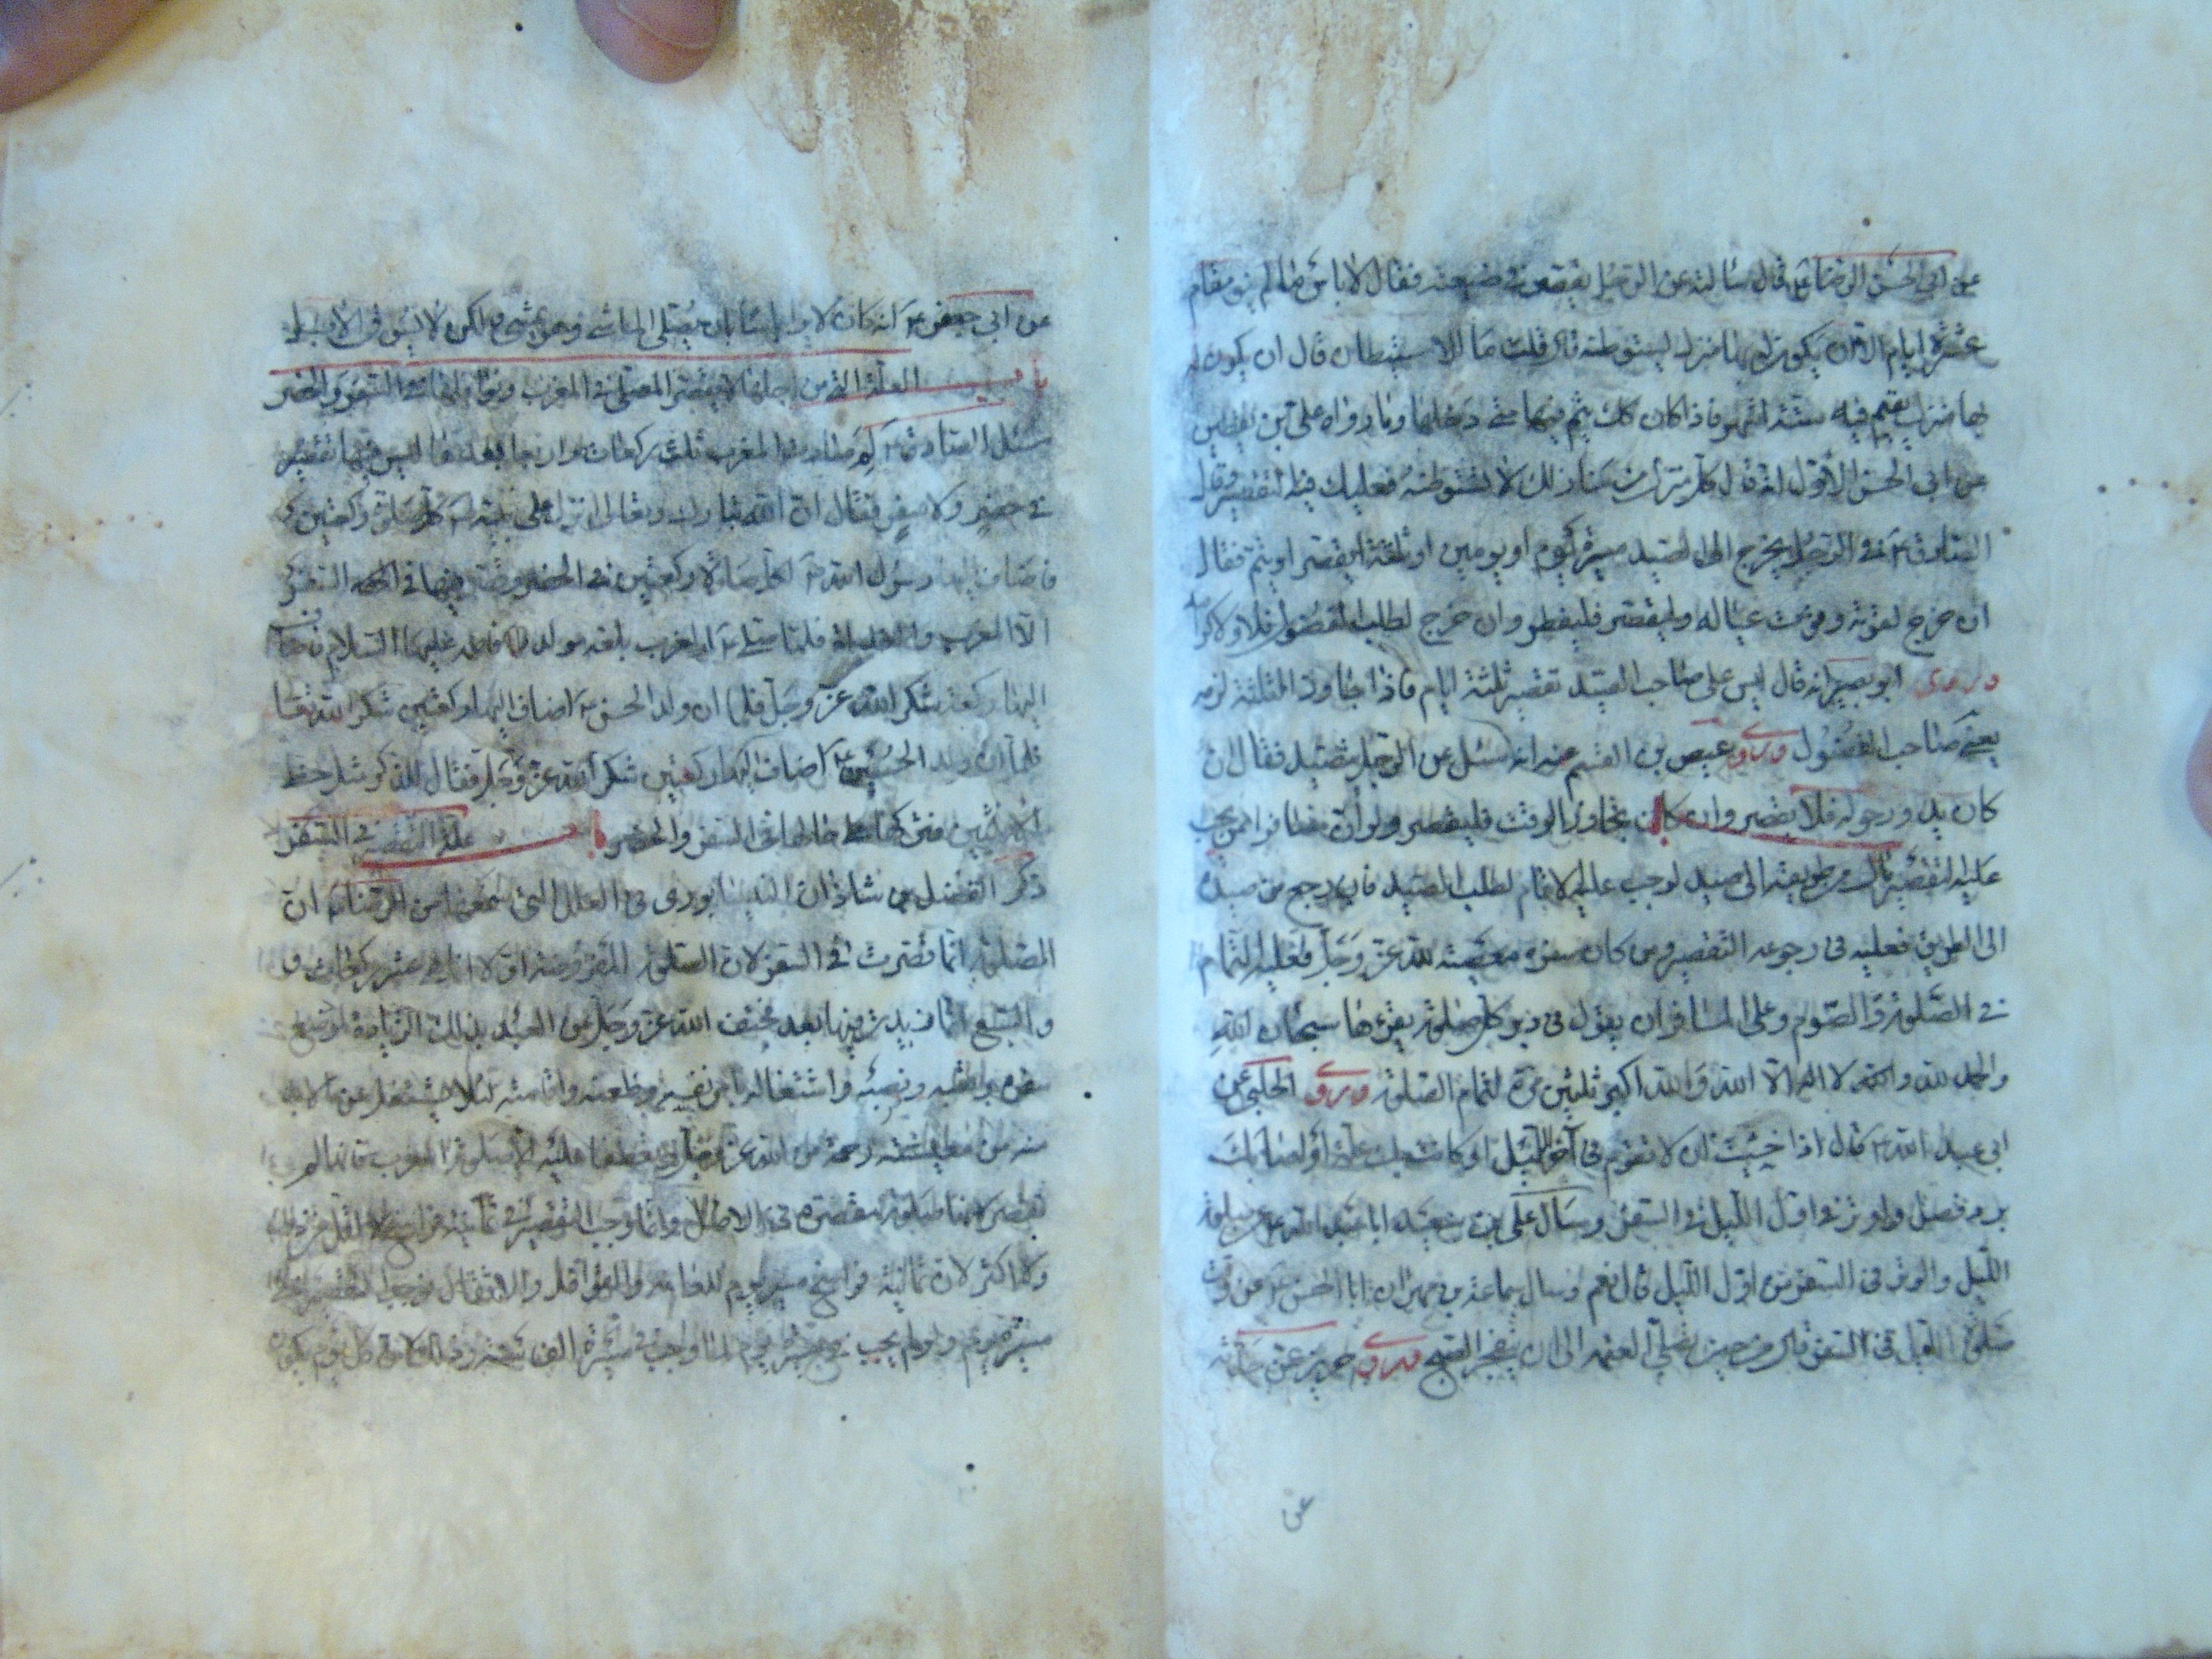 عن ابي الحسن الرضا ع قال سالته عن الرجل يقصر في ضيعته فقال لا باس ما لم ينو مقام
عشرة ايام الا ان يكون له بها منزل يستوطنه قال قلت ما الاستيطان قال ان يكون له
بها منزل يقيم فيه ستة اشهر فاذا كان كذلك يتم فيها متى دخلها وما رواه علي بن يقطين
عن ابي الحسن الاول انه قال كل منزل من منازلك لا تستوطنه فعليك فيه التقصير وقال
الصادق ع في الرجل يخرج الى الصيد مسيرة يوم او يومين او ثلثة ايقصر او يتم فقال
ان خرج لقوته وقوت عياله وليقصر فليفطر وان خرج لطلب الفضول فلا ولا كرامة
وروى ابو بصير انه قال ليس على صاحب الصيد تقصير ثلثة ايام فاذا جاوز الثلثة لزمه
يعني صاحب الفضول وروى عيص بن القسم عنه انه سئل عن الرجل يتصيد فقال ان
كان يدور حوله فلا يقصر وان كان تجاوز الوقت فليقصر ولو ان مسافرا ممن يجب
عليه التقصير مال من طريقه الى صيد لوجب عليه الاتمام لطلب الصيد فان رجع من صيده
الى الطريق فعليه في رجوعه التقصير ومن كان سفره معصية لله عز وجل فعليه التمام
في الصلوة والصوم وعلى المسافر ان يقول في دبر كل صلوة يقصرها سبحان الله
والحمد لله ولا اله الا الله والله اكبر ثلثين مرة لتمام الصلوة وروى الحلبي عن
ابي عبد الله ع قال اذا خشيت ان لا تقوم في آخر الليل او كانت بك علة او اصابك
برد فصل واوتر في اول الليل في السفر وسال علي بن سعيد ابا عبد الله عن صلوة
الليل والوتر في السفر من اول الليل قال نعم وسال سماعة بن مهران ابا الحسن ع عن وقت
صلوة الليل في السفر فقال من حين تصلي العتمة الى ان ينفجر الصبح وروى حريز عن
عن
عن ابي جعفر ع انه كان لا يرى باسا بان يصلي الماشي وهو يمشي ولكن لا يسوق الابل
باب العلة التي من اجلها لا يقصر المصلي في المغرب ونوافلها في السفر والحضر
سئل الصادق ع لم صارت المغرب ثلث ركعات واربعا بعدها ليس فيها تقصير
في حضر ولا سفر فقال ان الله تبارك وتعالى انزل على نبيه كل صلوة ركعتين
فاضاف اليها رسول الله لكل صلاة ركعتين في الحضر وقصر فيها في السفر
الا المغرب والغداة فلما صلى ع المغرب بلغه مولد فاطمة عليها السلام فاضاف
اليها ركعة شكرا لله عز وجل فلما ان ولد الحسن ع اضاف اليها ركعتين شكرا لله تعا
فلما ان ولد الحسين ع اضاف اليها ركعتين شكرا لله عز وجل فقال للذكر مثل حظ
الانثيين فتركها على حالها في السفر والحضر باب علة التقصير في السفر
ذكر الفضل بن شاذان النيسابوري في العلل التي سمعها من الرضا ع ان
الصلوة انما قصرت في السفر لان الصلوة المفروضة اولا انما هي عشر ركعات
والسبع انما زيدت فيها بعد فخفف الله عز وجل عن العبد تلك الزيادة لموضع
سفره وتعبه ونصبه واشتغاله بامر نفسه وظعنه واقامته لئلا يشتغل عن ما لا بد
منه من معيشته رحمة من الله عز وجل وتعطفا عليه الا صلوة المغرب فانها لم
تقصر لانها صلوة مقصرة في الاصل وانما وجب التقصير في ثمانية فراسخ لا اقل من ذلك
ولا اكثر لان ثمانية فراسخ مسير يوم للعامة والقوافل والاثقال فوجب التقصير في
مسيرة يوم ولو لم يجب في مسيرة يوم لما وجب في مسيرة الف سنة وذلك لان كل يوم يكون